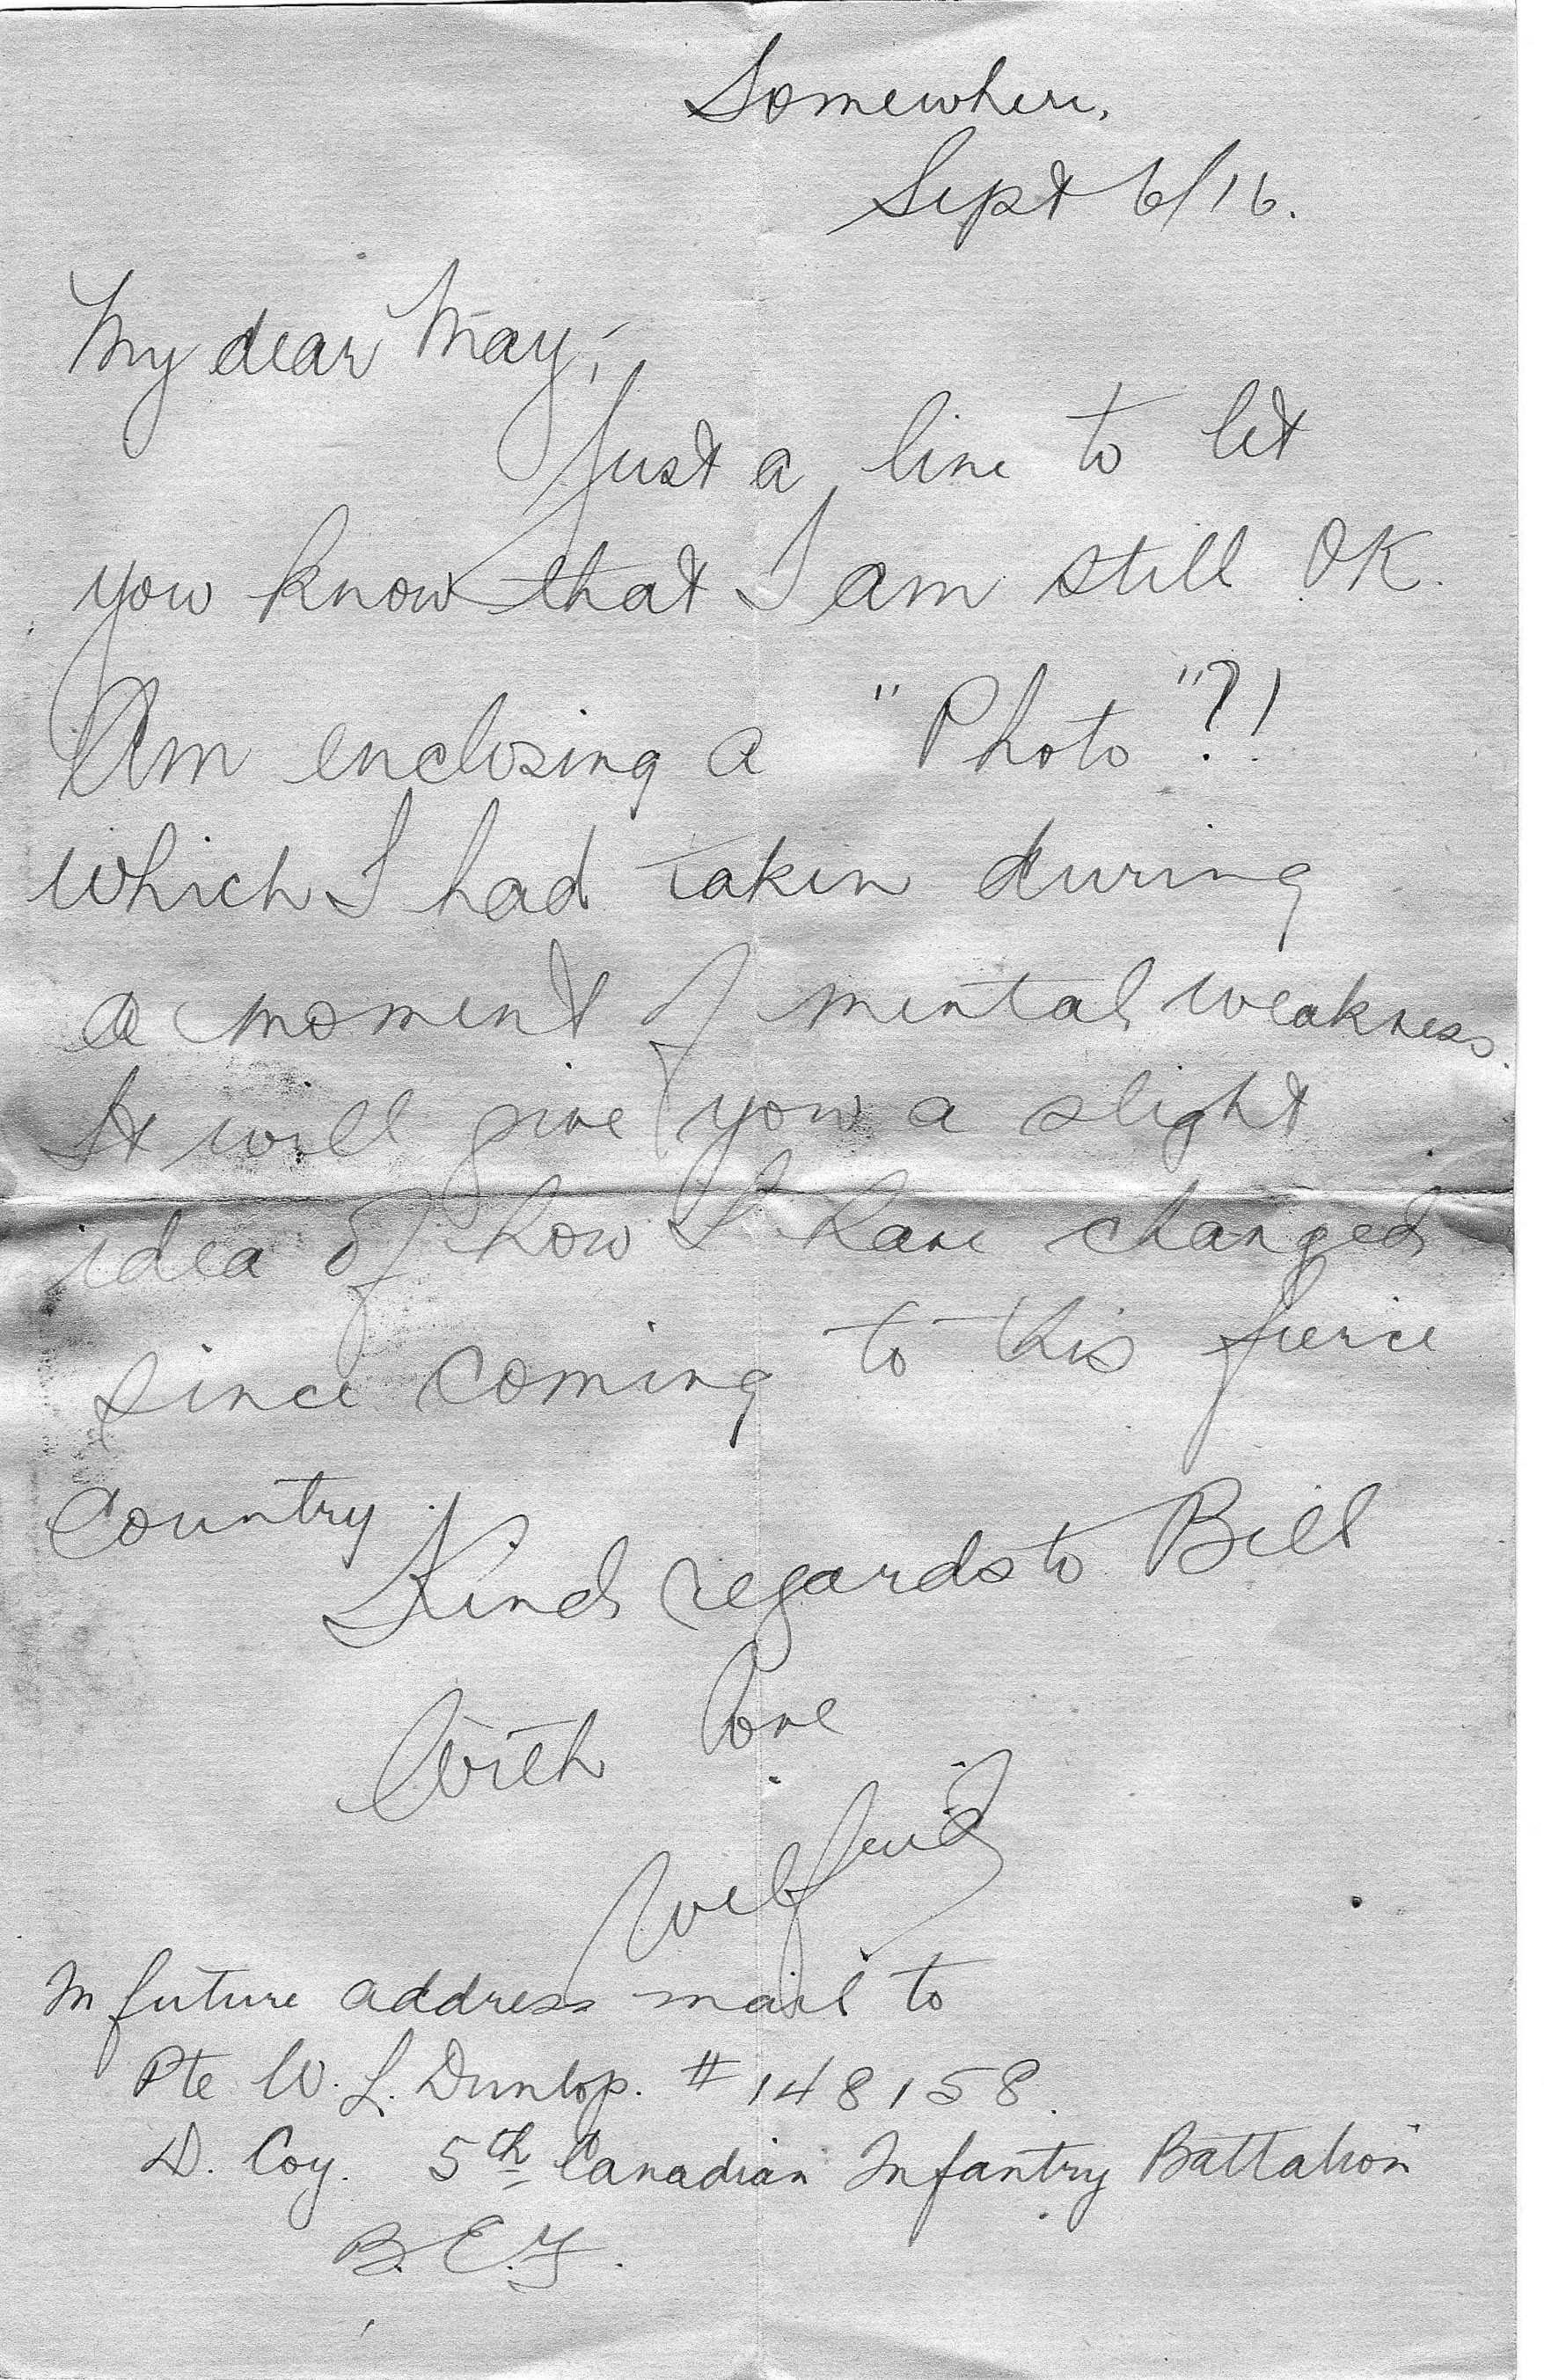 Somewhere,
Sept 6/16.
My dear May,-
Just a line to let
you know that I am still OK.
Am enclosing a "Photo"?!
which I had taken during
a moment of mental weakness.
It will give you a slight
idea of how I have changed
since coming to this fierce
Country.
Kind regards to Bill
With Love
Wilfrid
In future address mail to
Pte W. L. Dunlop. # 148158.
D. Coy. 5th Canadian Infantry Battalion
B.E.F.